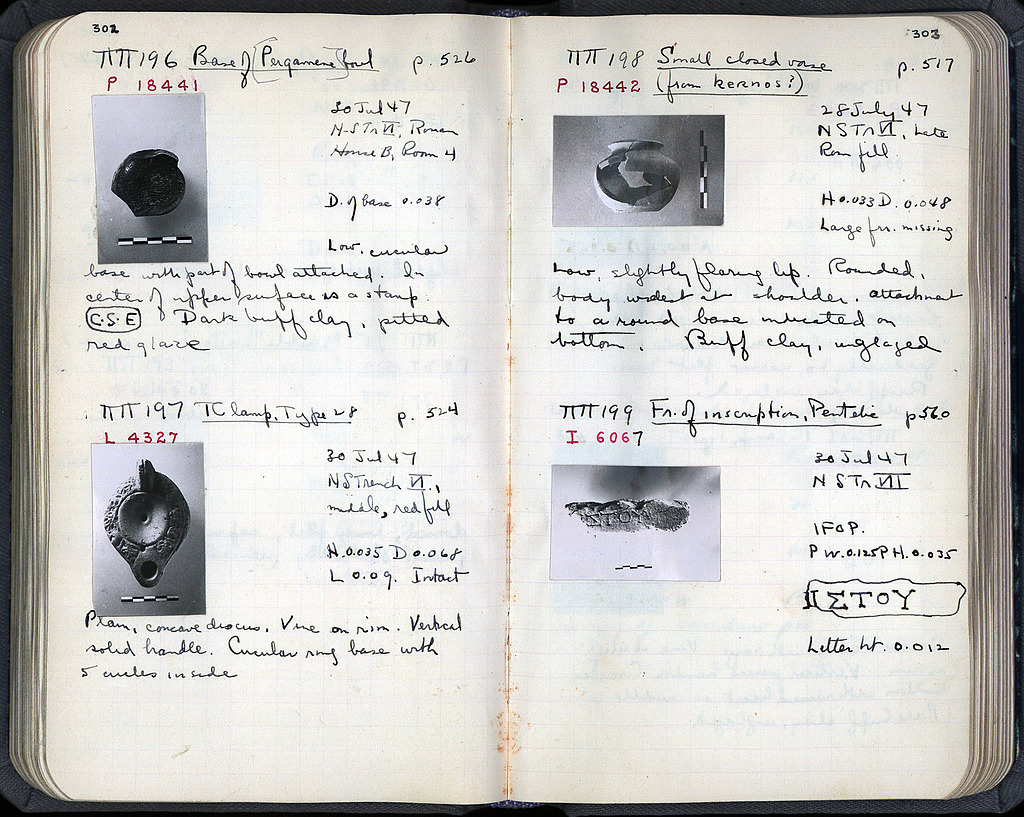 302
ΠΠ 196 Base of [Pergamene] bowl p. 526
P 18441
30 Jul 47
N-STr VI, Roman
House B, Room 4
D. of base 0.038
Low, circular
base with part of bowl attached. In
center of upper surface is a stamp.
C·S·E Dark buff clay, pitted
red glaze
ΠΠ 197 TC lamp, Type 28 p. 524
L 4327
30 Jul 47
NSTrench VI,
middle, red fill
H. 0.035 D 0.068
L 0.09. Intact
Plain, concave discus, Vine on rim. Vertical
solid handle. Circular ring base with
5 circles inside
303
ΠΠ 198 Small closed vase p. 517
P 18442 (from kernos?)
28 July 47
N STr VI, Late
Rom fill.
H 0.033 D. 0.048
Large frr. missing
Low, slightly flaring lip. Rounded,
body widest at shoulder, attachment
to a round base indicated on
bottom. Buff clay, unglazed
ΠΠ 199 Fr. of inscription, Pentelic p 560
I 6067
30 Jul 47
N STr VII
IFOP.
P W. 0.125 P H. 0.035
ΙΣΤΟΥ
Letter ht. 0.012